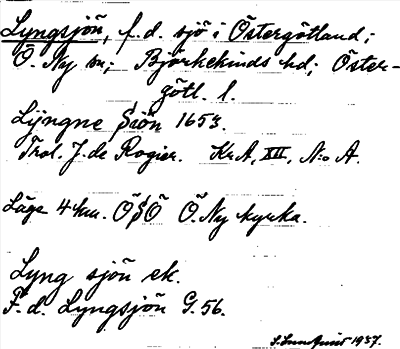 Lyngsjön, f.d. sjö i Östergötland;
Ö. Ny sn; Björkekinds hd; Öster-
götl. l.
Lijngne Siön 1653.
Trol. J. de Rogier. Kr.A, XII, N:o A.
Läge 4 km. ÖSÖ Ö. Ny kyrka.
Lyng sjön ek.
F. d. Lyngsjön G. 56.
1937.